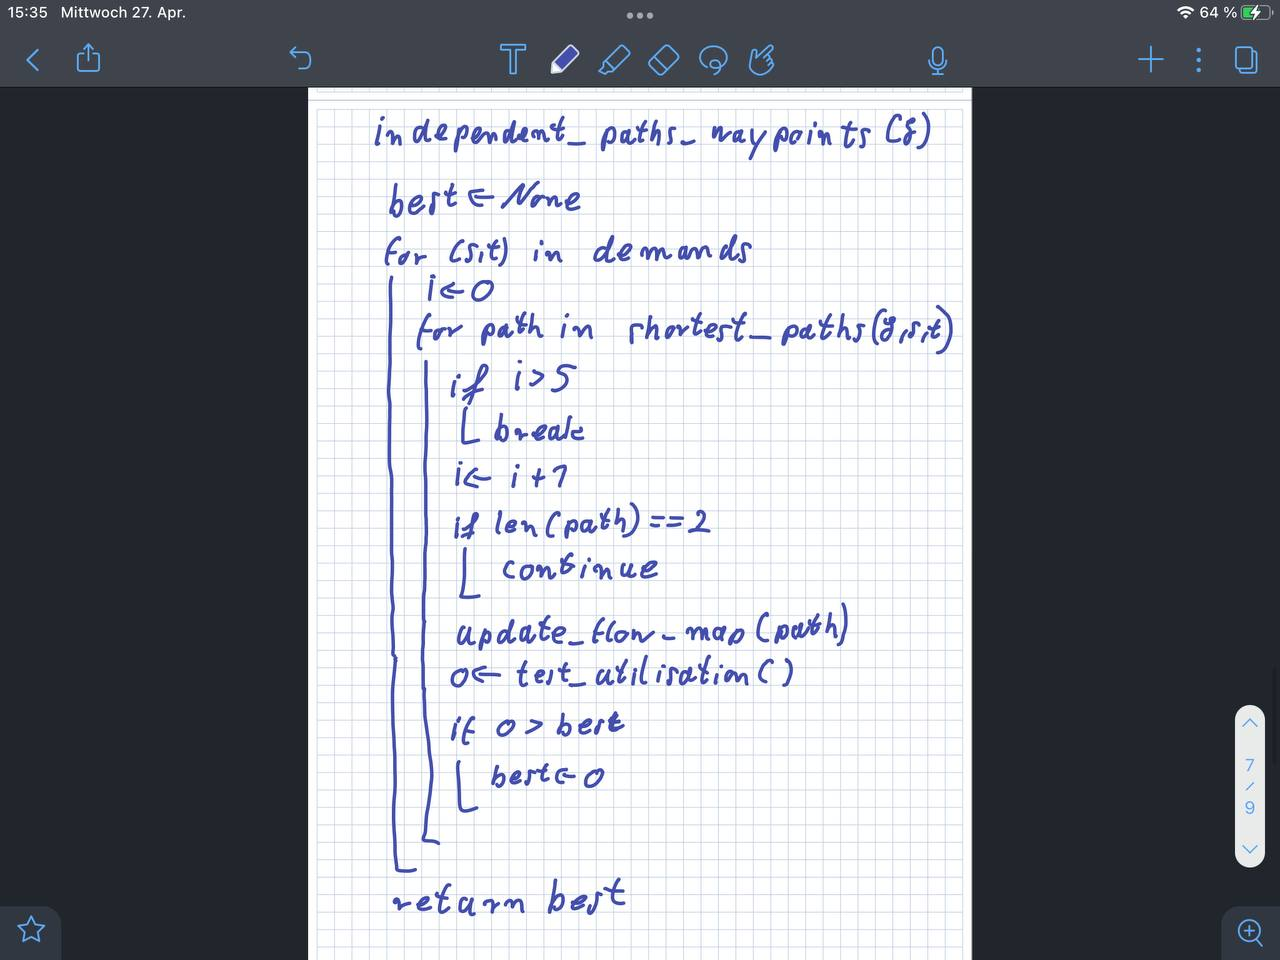 15:35 Mittwoch 27. Apr.
64 %
independent_paths_waypoints (g)
best ← None
for (s,t) in demands
i ← 0
for path in shortest_paths(g,s,t)
if i > 5
break
i ← i + 1
if len(path) == 2
continue
update_flow_map (path)
o ← test_utilisation ( )
if o > best
best ← o
return best
7
/
9